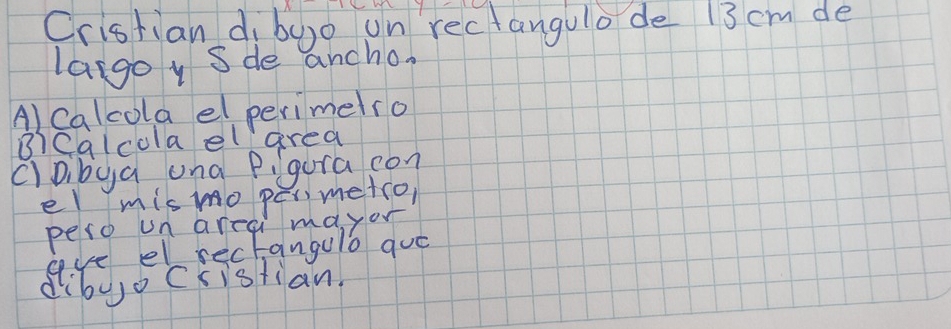 Cristian dibujo un rectangulo de 13 cm de
largo y 5 de ancho.
A) Calcula el perimetro
B) Calcula el area
C) Dibuja una figura con
el mismo perimetro,
pero un area mayor
que el rectangulo que
dibujo Cristian.